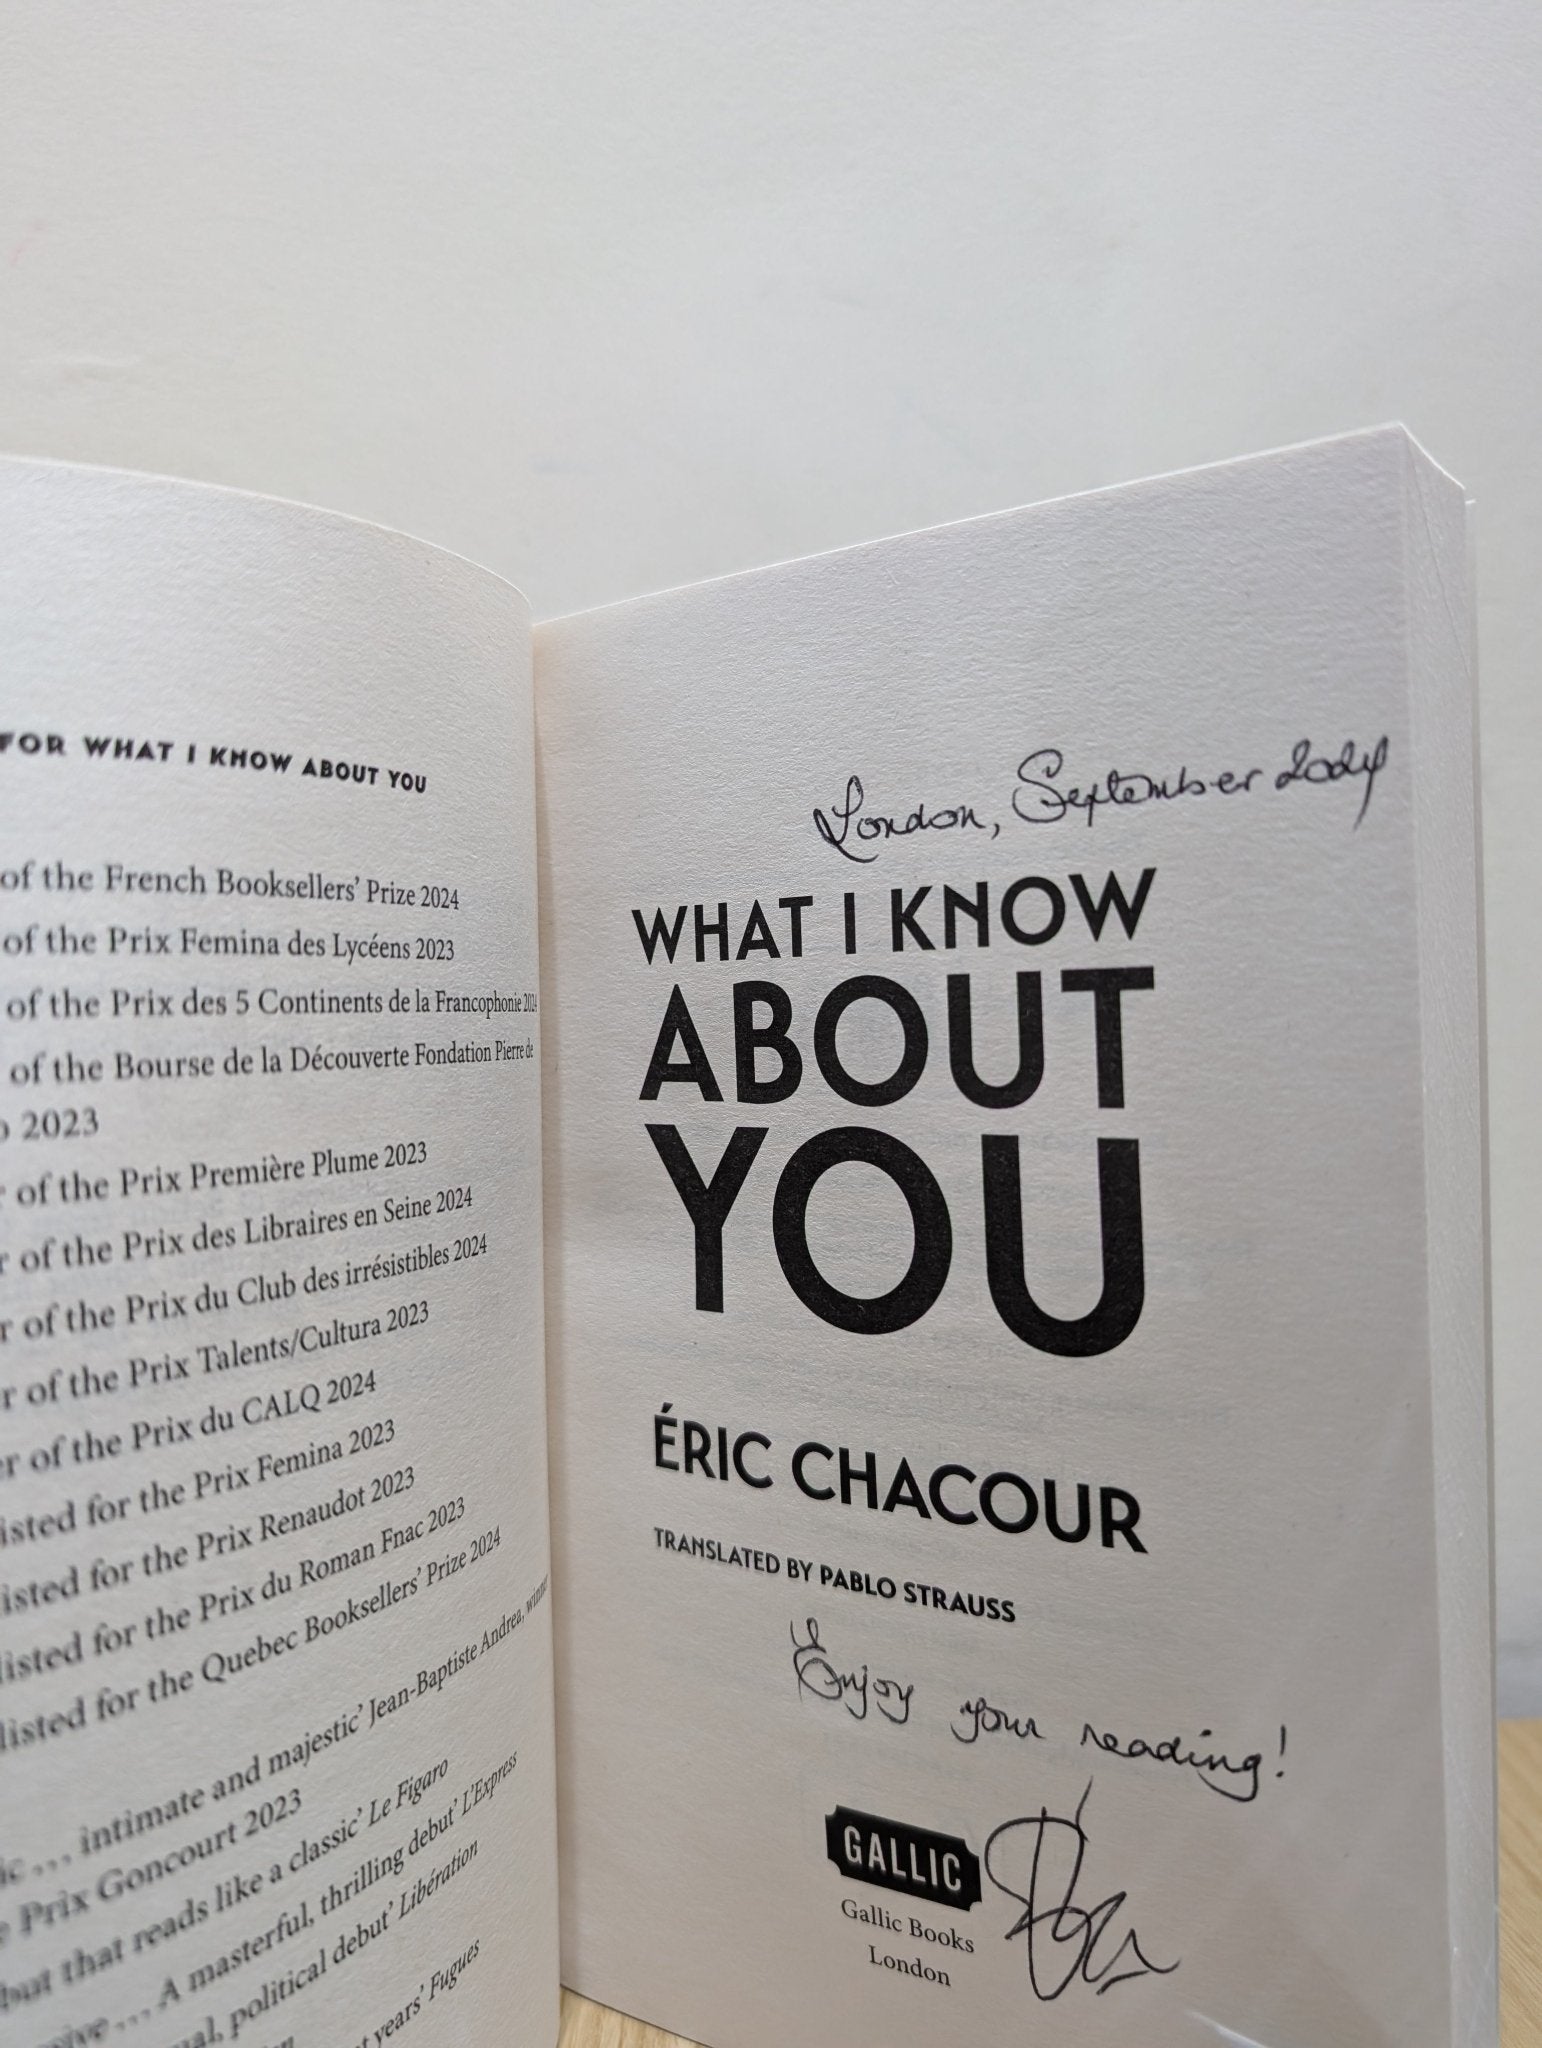 FOR WHAT I KNOW ABOUT YOU
of the French Booksellers' Prize 2024
of the Prix Femina des Lycéens 2023
of the Prix des 5 Continents de la Francophonie 2024
of the Bourse de la Découverte Fondation Pierre de
2023
of the Prix Première Plume 2023
of the Prix des Libraires en Seine 2024
of the Prix du Club des irrésistibles 2024
of the Prix Talents/Cultura 2023
of the Prix du CALQ 2024
listed for the Prix Femina 2023
listed for the Prix Renaudot 2023
listed for the Prix du Roman Fnac 2023
listed for the Quebec Booksellers' Prize 2024
... intimate and majestic' Jean-Baptiste Andrea, winner
Prix Goncourt 2023
but that reads like a classic' Le Figaro
... A masterful, thrilling debut' L'Express
political debut' Libération
years' Fugues
London, September 2024
WHAT I KNOW
ABOUT
YOU
ÉRIC CHACOUR
TRANSLATED BY PABLO STRAUSS
Enjoy your reading!
GALLIC
Gallic Books
London